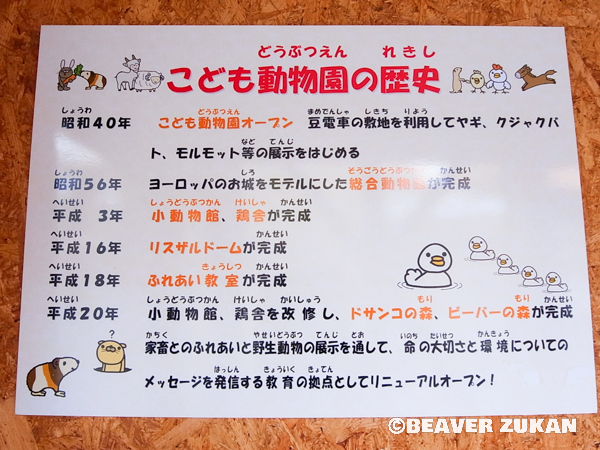 どうぶつえん れきし
こども動物園の歴史
しょうわ どうぶつえん まめでんしゃ しきち りよう
昭和40年 こども動物園オープン 豆電車の敷地を利用してヤギ、クジャクバ
など てんじ
ト、モルモット等の展示をはじめる
しょうわ しろ そうごうどうぶつかん かんせい
昭和56年 ヨーロッパのお城をモデルにした総合動物館が完成
へいせい しょうどうぶつかん けいしゃ かんせい
平成 3年 小動物館、鶏舎が完成
へいせい かんせい
平成16年 リスザルドームが完成
へいせい きょうしつ かんせい
平成18年 ふれあい教室が完成
へいせい しょうどうぶつかん けいしゃ かいしゅう もり もり かんせい
平成20年 小動物館、鶏舎を改修し、ドサンコの森、ビーバーの森が完成
?
かちく やせいどうぶつ てんじ とお いのち たいせつ かんきょう
家畜とのふれあいと野生動物の展示を通して、命の大切さと環境についての
はっしん きょういく きょてん
メッセージを発信する教育の拠点としてリニューアルオープン!
©BEAVER ZUKAN